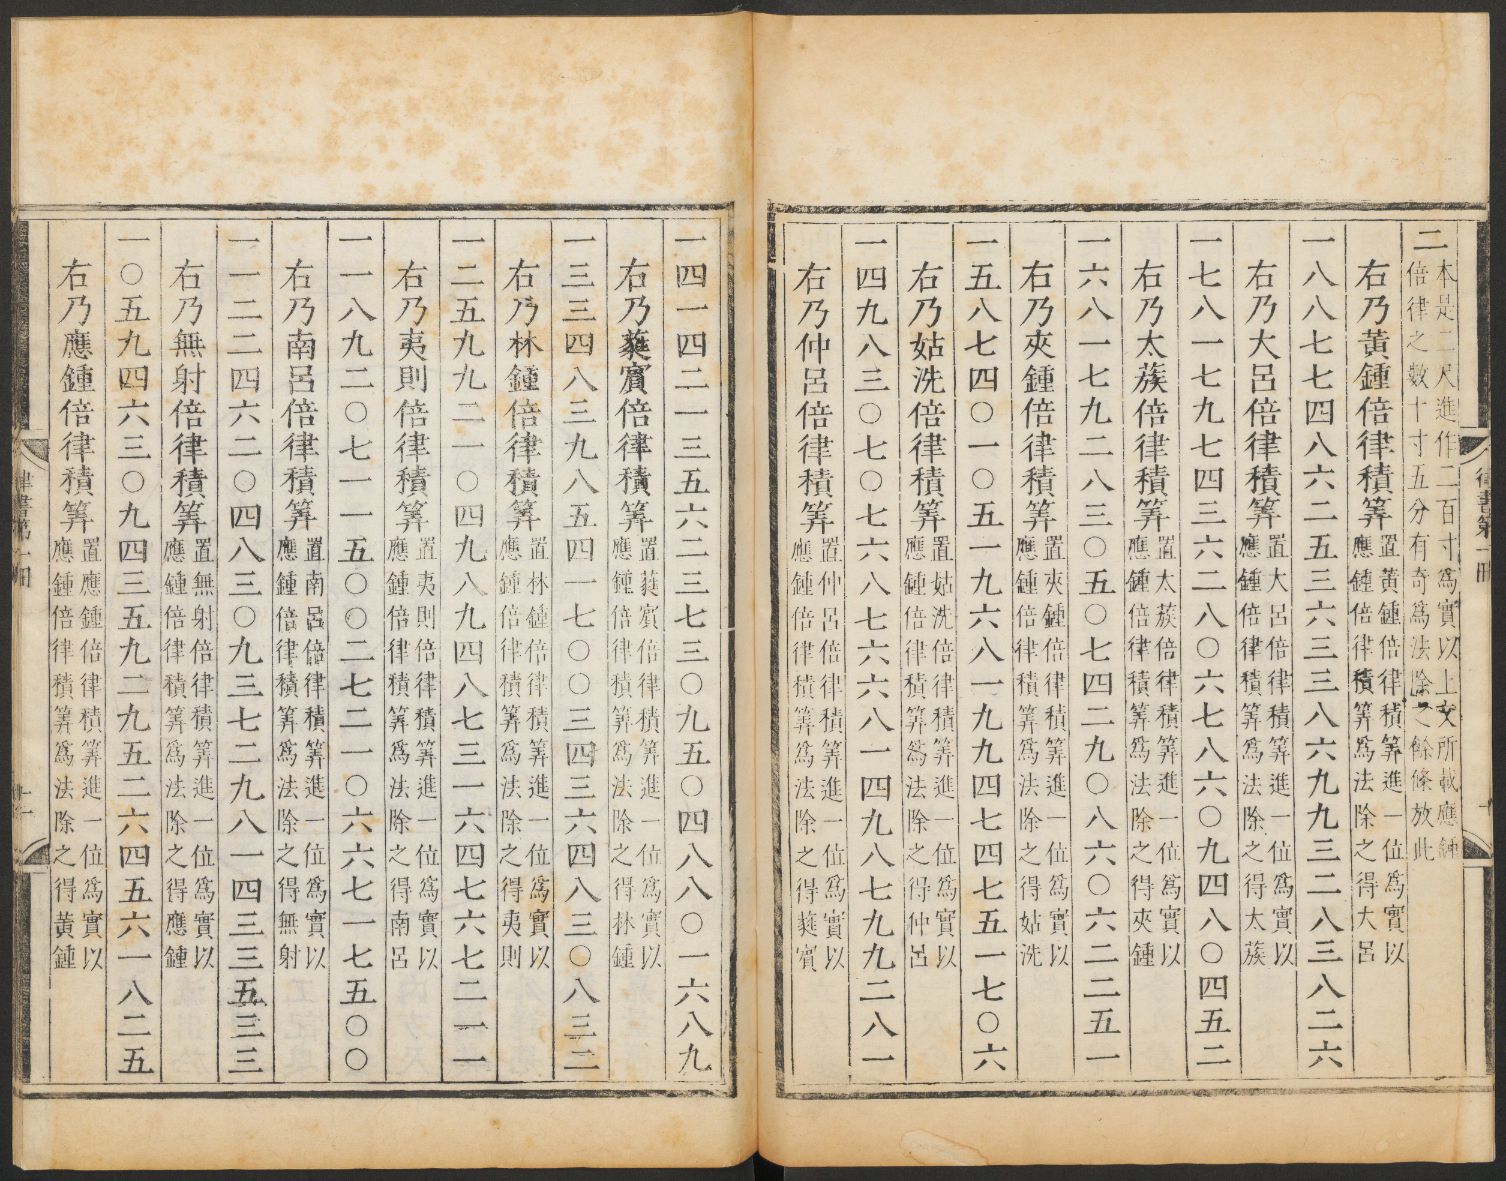 二
本是二尺進作二百寸為實以上文所載應鍾
倍律之數十寸五分有奇為法除之餘條放此
右乃黃鍾倍律積筭
置黃鍾倍律積筭進一位為實以
應鍾倍律積筭為法除之得大呂
一八八七七四八六二五三六三三八六九九三二八三八二六
右乃大呂倍律積筭
置大呂倍律積筭進一位為實以
應鍾倍律積筭為法除之得太蔟
一七八一七九七四三六二八○六七八六○九四八○四五二
右乃太蔟倍律積筭
置太蔟倍律積筭進一位為實以
應鍾倍律積筭為法除之得夾鍾
一六八一七九二八三○五○七四二九○八六○六二二五一
右乃夾鍾倍律積筭
置夾鍾倍律積筭進一位為實以
應鍾倍律積筭為法除之得姑洗
一五八七四○一○五一九六八一九九四七四七五一七○六
右乃姑洗倍律積筭
置姑洗倍律積筭進一位為實以
應鍾倍律積筭為法除之得仲呂
一四九八三○七○七六八七六六八一四九八七九九二八一
右乃仲呂倍律積筭
置仲呂倍律積筭進一位為實以
應鍾倍律積筭為法除之得蕤賓
一四一四二一三五六二三七三○九五○四八八○一六八九
右乃蕤賓倍律積筭
置蕤賓倍律積筭進一位為實以
應鍾倍律積筭為法除之得林鍾
一三三四八三九八五四一七○○三四三六四八三○八三二
右乃林鍾倍律積筭
置林鍾倍律積筭進一位為實以
應鍾倍律積筭為法除之得夷則
一二五九九二一○四九八九四八七三一六四七六七二一一
右乃夷則倍律積筭
置夷則倍律積筭進一位為實以
應鍾倍律積筭為法除之得南呂
一一八九二○七一一五○○二七二一○六六七一七五○○
右乃南呂倍律積筭
置南呂倍律積筭進一位為實以
應鍾倍律積筭為法除之得無射
一一二二四六二○四八三○九三七二九八一四三三五三三
右乃無射倍律積筭
置無射倍律積筭進一位為實以
應鍾倍律積筭為法除之得應鍾
一○五九四六三○九四三五九二九五二六四五六一八二五
右乃應鍾倍律積筭
置應鍾倍律積筭進一位為實以
應鍾倍律積筭為法除之得黃鍾
律書第一冊